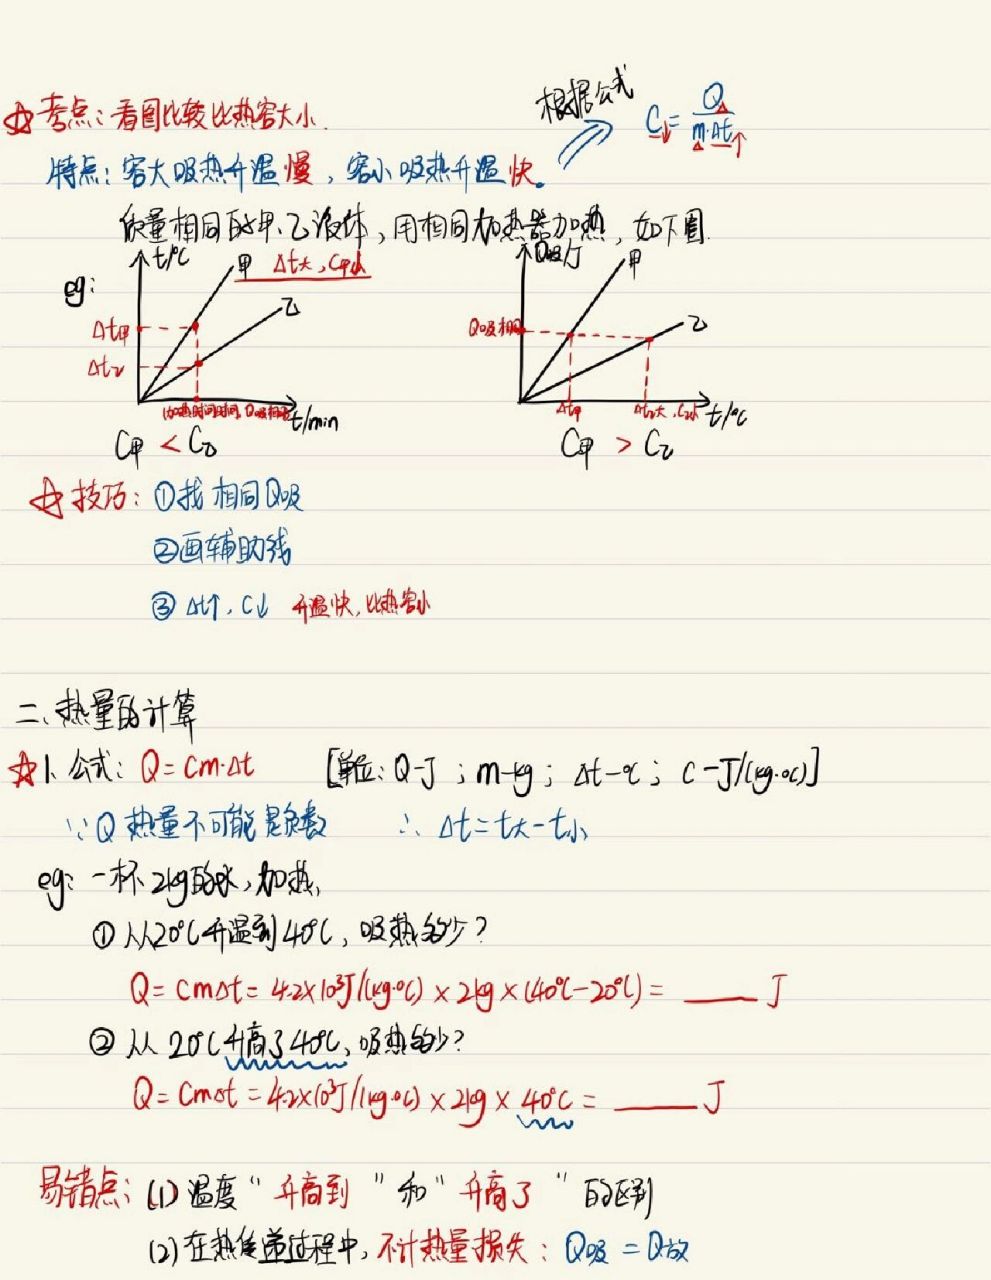 ☆考点:看图比较比热容大小.
根据公式 C↓=Q/m·Δt↑
特点:容大吸热升温慢,容小吸热升温快。
质量相同的甲、乙液体,用相同加热器加热,如下图.
eg:
t/℃ 甲 Δt大,C甲小
乙
Δt甲
Δt乙
t/min
C甲 < C乙
Q吸/J 甲
乙
Q吸相同
Δt甲 Δt乙大,C乙小 t/℃
C甲 > C乙
☆技巧:①找相同Q吸
②画辅助线
③Δt↑,C↓ 升温快,比热容小
二、热量的计算
☆1、公式:Q=cm·Δt [单位:Q-J;m-kg;Δt-℃;c-J/(kg·℃)]
∵Q热量不可能是负数 ∴Δt=t大-t小
eg:一杯2kg的水,加热,
①从20℃升温到40℃,吸热多少?
Q=cmΔt=4.2×10³J/(kg·℃)×2kg×(40℃-20℃)=____J
②从20℃升高了40℃,吸热多少?
Q=cmΔt=4.2×10³J/(kg·℃)×2kg×40℃=____J
易错点:(1)温度“升高到”和“升高了”的区别
(2)在热传递过程中,不计热量损失:Q吸=Q放